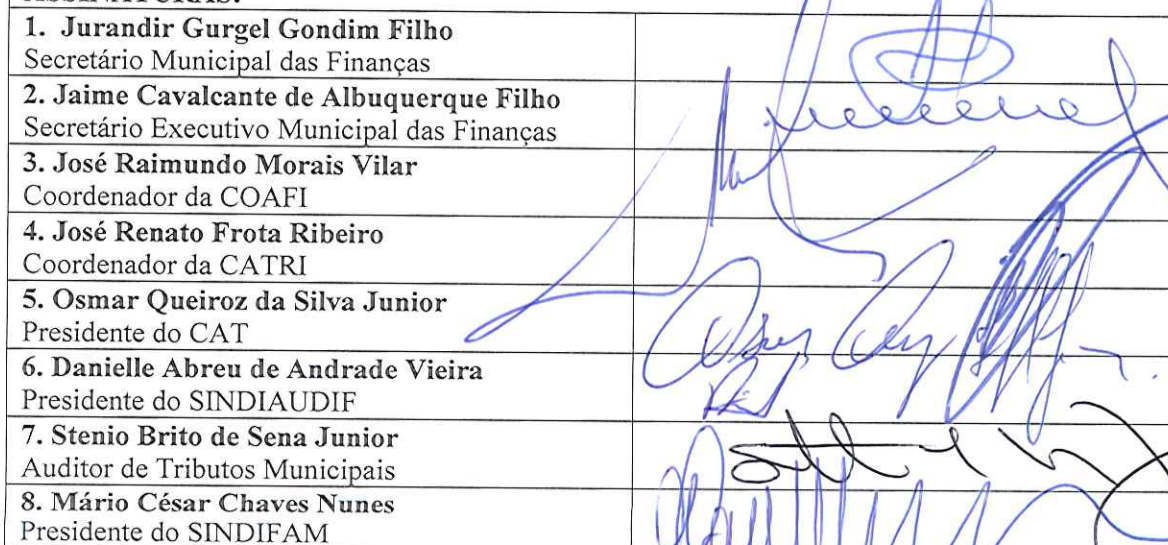 ASSINATURAS:
1. Jurandir Gurgel Gondim Filho
Secretário Municipal das Finanças
2. Jaime Cavalcante de Albuquerque Filho
Secretário Executivo Municipal das Finanças
3. José Raimundo Morais Vilar
Coordenador da COAFI
4. José Renato Frota Ribeiro
Coordenador da CATRI
5. Osmar Queiroz da Silva Junior
Presidente do CAT
6. Danielle Abreu de Andrade Vieira
Presidente do SINDIAUDIF
7. Stenio Brito de Sena Junior
Auditor de Tributos Municipais
8. Mário César Chaves Nunes
Presidente do SINDIFAM